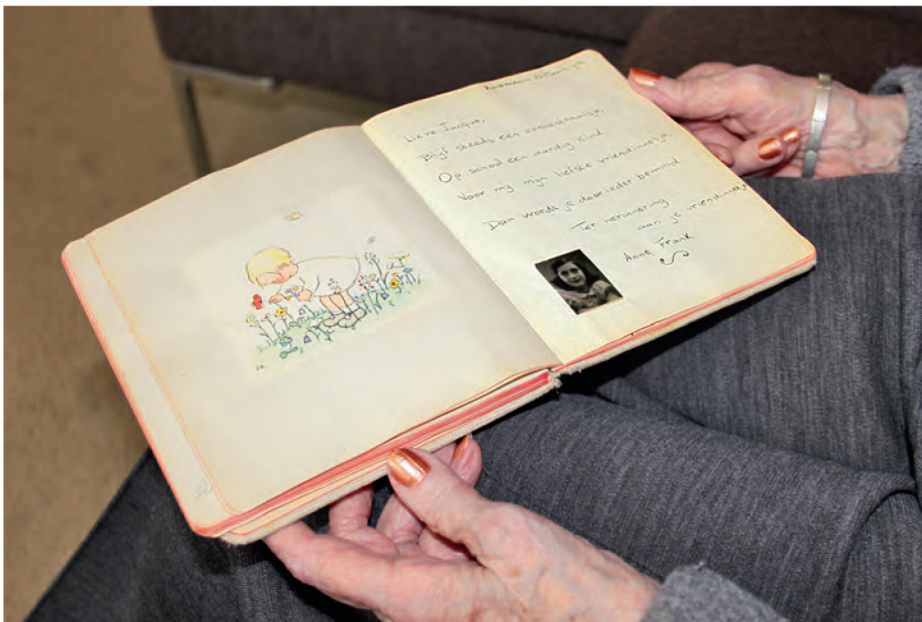 Lieve Jacque,
Blijf steeds een zonnestraaltje,
Op school een aardig kind
Voor my mijn liefste vriendinnetje,
Dan wordt je door ieder bemind.
Ter herinnering
aan je vriendinnetje
Anne Frank